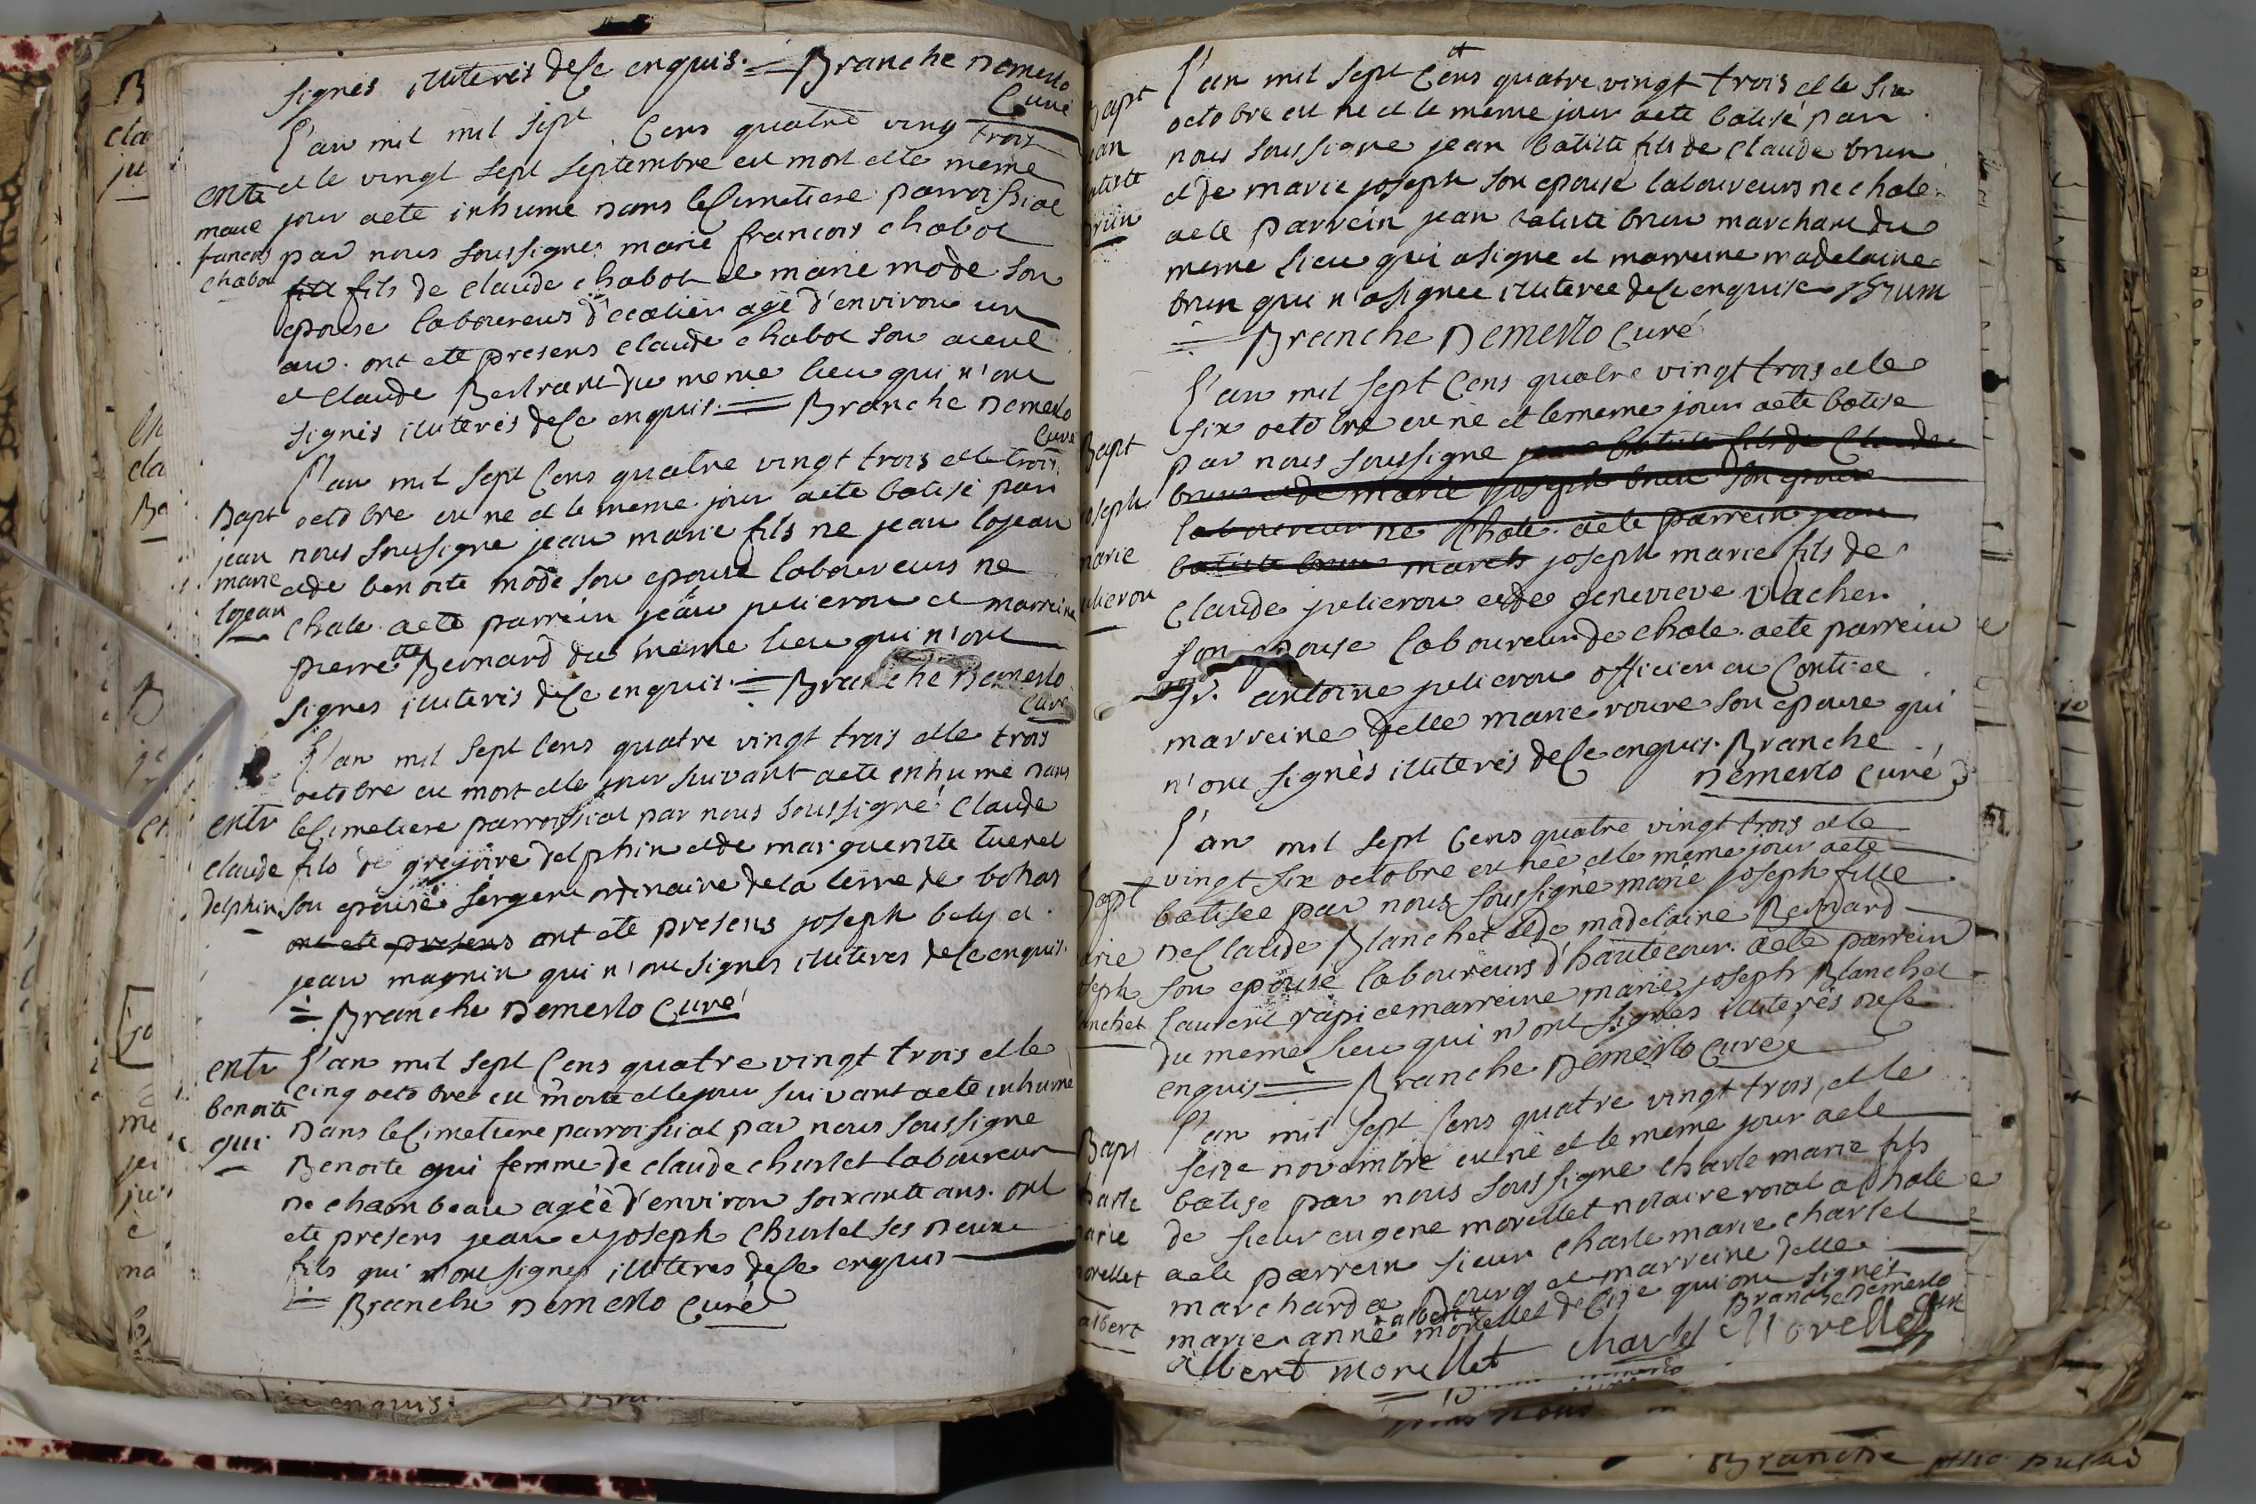 signes illiteres de ce enquis. = Branche Demerlo
Curé
L'an mil mil sept Cens quatre ving trois
et le vingt sept septembre est mort et le meme
jour aete inhume dans le Cimetiere parroissial
par nous soussigne marie francois chabot
fille fils de claude chabot et marie mode son
epouse laboureurs d'ecalier agé d'environ un
an. ont ete presens claude chabot son aieul
et claude Bertrand du meme lieu qui n'ont
signés illiterés de ce enquis. = Branche Demerlo
Curé
ente
marie
francois
chabot
L'an mil sept Cens quatre vingt trois et le trois
octobre est ne et le meme jour aete batisé par
nous soussigne jean marie fils ne jean lojean
et de benoite mode son epouse laboureurs ne
chale. aete parrein jean julieron et marreine
pierrette Bernard du meme lieu qui n'ont
signes illiterés de ce enquis. = Branche Demerlo
Curé
Bapt
jean
marie
lojean
L'an mil sept Cens quatre vingt trois et le trois
octobre est mort et le jour suivant aete inhumé dans
le Cimetiere parroissial par nous soussigné Claude
fils de gregoire delphin et de marguerite tueret
son epouse sergent ordinaire de la terre de bohas
ont ete presens ont ete presens joseph bely et
jean magnin qui n'ont signes illiteres de ce enquis.
= Branche Demerlo Curé
entr
claude
delphin
L'an mil sept Cens quatre vingt trois et le
cinq octobre est morte et le jour suivant aete inhume
Dans le Cimetiere parroissial par nous soussigne
Benoite qui femme de claude churlet laboureur
ne chambeau agée d'environ soixante ans. ont
ete presens jean et joseph Churlet ses Deux
fils qui n'ont signes illiteres de ce enquis
= Branche Demerlo Curé
entr
benoite
qui
L'an mil sept Cens quatre vingt trois et le six
octobre est ne et le meme jour aete batisé par
nous soussigne jean batiste fils de claude brun
et de marie joseph son epouse laboureurs ne chale.
aete parrein jean batiste brun marchand du
meme lieu qui a signe et marreine madelaine
brun qui n'a signee illiteree de ce enquise Brun
= Branche Demerlo Curé
Bapt
jean
batiste
brun
L'an mil sept Cens quatre vingt trois et le
six octobre est né et le meme jour aete batise
par nous soussigne jean batiste fils de Claude
brun et de marie joseph brun son epouse
laboureur ne Chale. aete parrein jean
batiste brun march joseph marie fils de
Claude julieron et de genevieve Vacher
son epouse laboureur de chale. aete parrein
Sr. antoine julieron officier au Conti et
marreine delle marie roure son epouse qui
n'ont signés illiterés de ce enquis. Branche
Demerlo Curé
Bapt
joseph
marie
julieron
L'an mil sept Cens quatre vingt trois et le
vingt six octobre est née et le meme jour aete
batisee par nous soussigné marie joseph fille
De Claude Blanchet et de madelaine Bernard
son epouse laboureurs d'hautecour. aete parrein
laurent rapi et marreine marie joseph Blanchet
du meme lieu qui n'ont signés illiterés de ce
enquis = Branche Demerlo Curé
Bapt
marie
joseph
blanchet
L'an mil sept Cens quatre vingt trois et le
seize novembre est né et le meme jour aete
batise par nous soussigne charle marie fils
de sieur eugene morellet notaire roial a Chale
aete parrein sieur charle marie charlet
marchard a Bourg et marreine delle
marie anne albert morellet de Cize qui ont signés
Branche Demerlo Curé
albert morellet Charlet Morellet
Bapt
charle
marie
morellet
albert
Branche